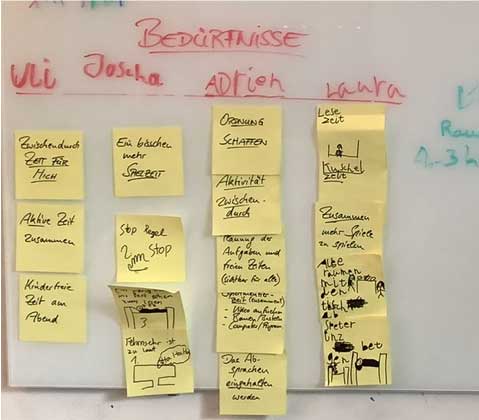 BEDÜRFNISSE
Uli Joscha Adrien Laura
Zwischendurch
ZEIT FÜR
MICH
Aktive Zeit
zusammen
Kinderfreie
Zeit am
Abend
Ein bisschen
mehr
SPIELZEIT
Stop Regel
Stop
3
Fernsehr ist
zu laut
1.
ORDNUNG
SCHAFFEN
Aktivität
zwischen-
durch
Planung der
Aufgaben und
freien Zeiten
(sichtbar für alle)
Experimentier-
Zeit (zusammen)
- Video
- Bauen/Basteln
- Computer/Program.
Das Ab-
sprachen
eingehalten
werden
Lese
Zeit
Kuschel
Zeit
Zusammen
mehr Spiele
zu spielen
Alle
räumen
mit
den
tisch
ab
Speter
inz
bet
Raum
1-3